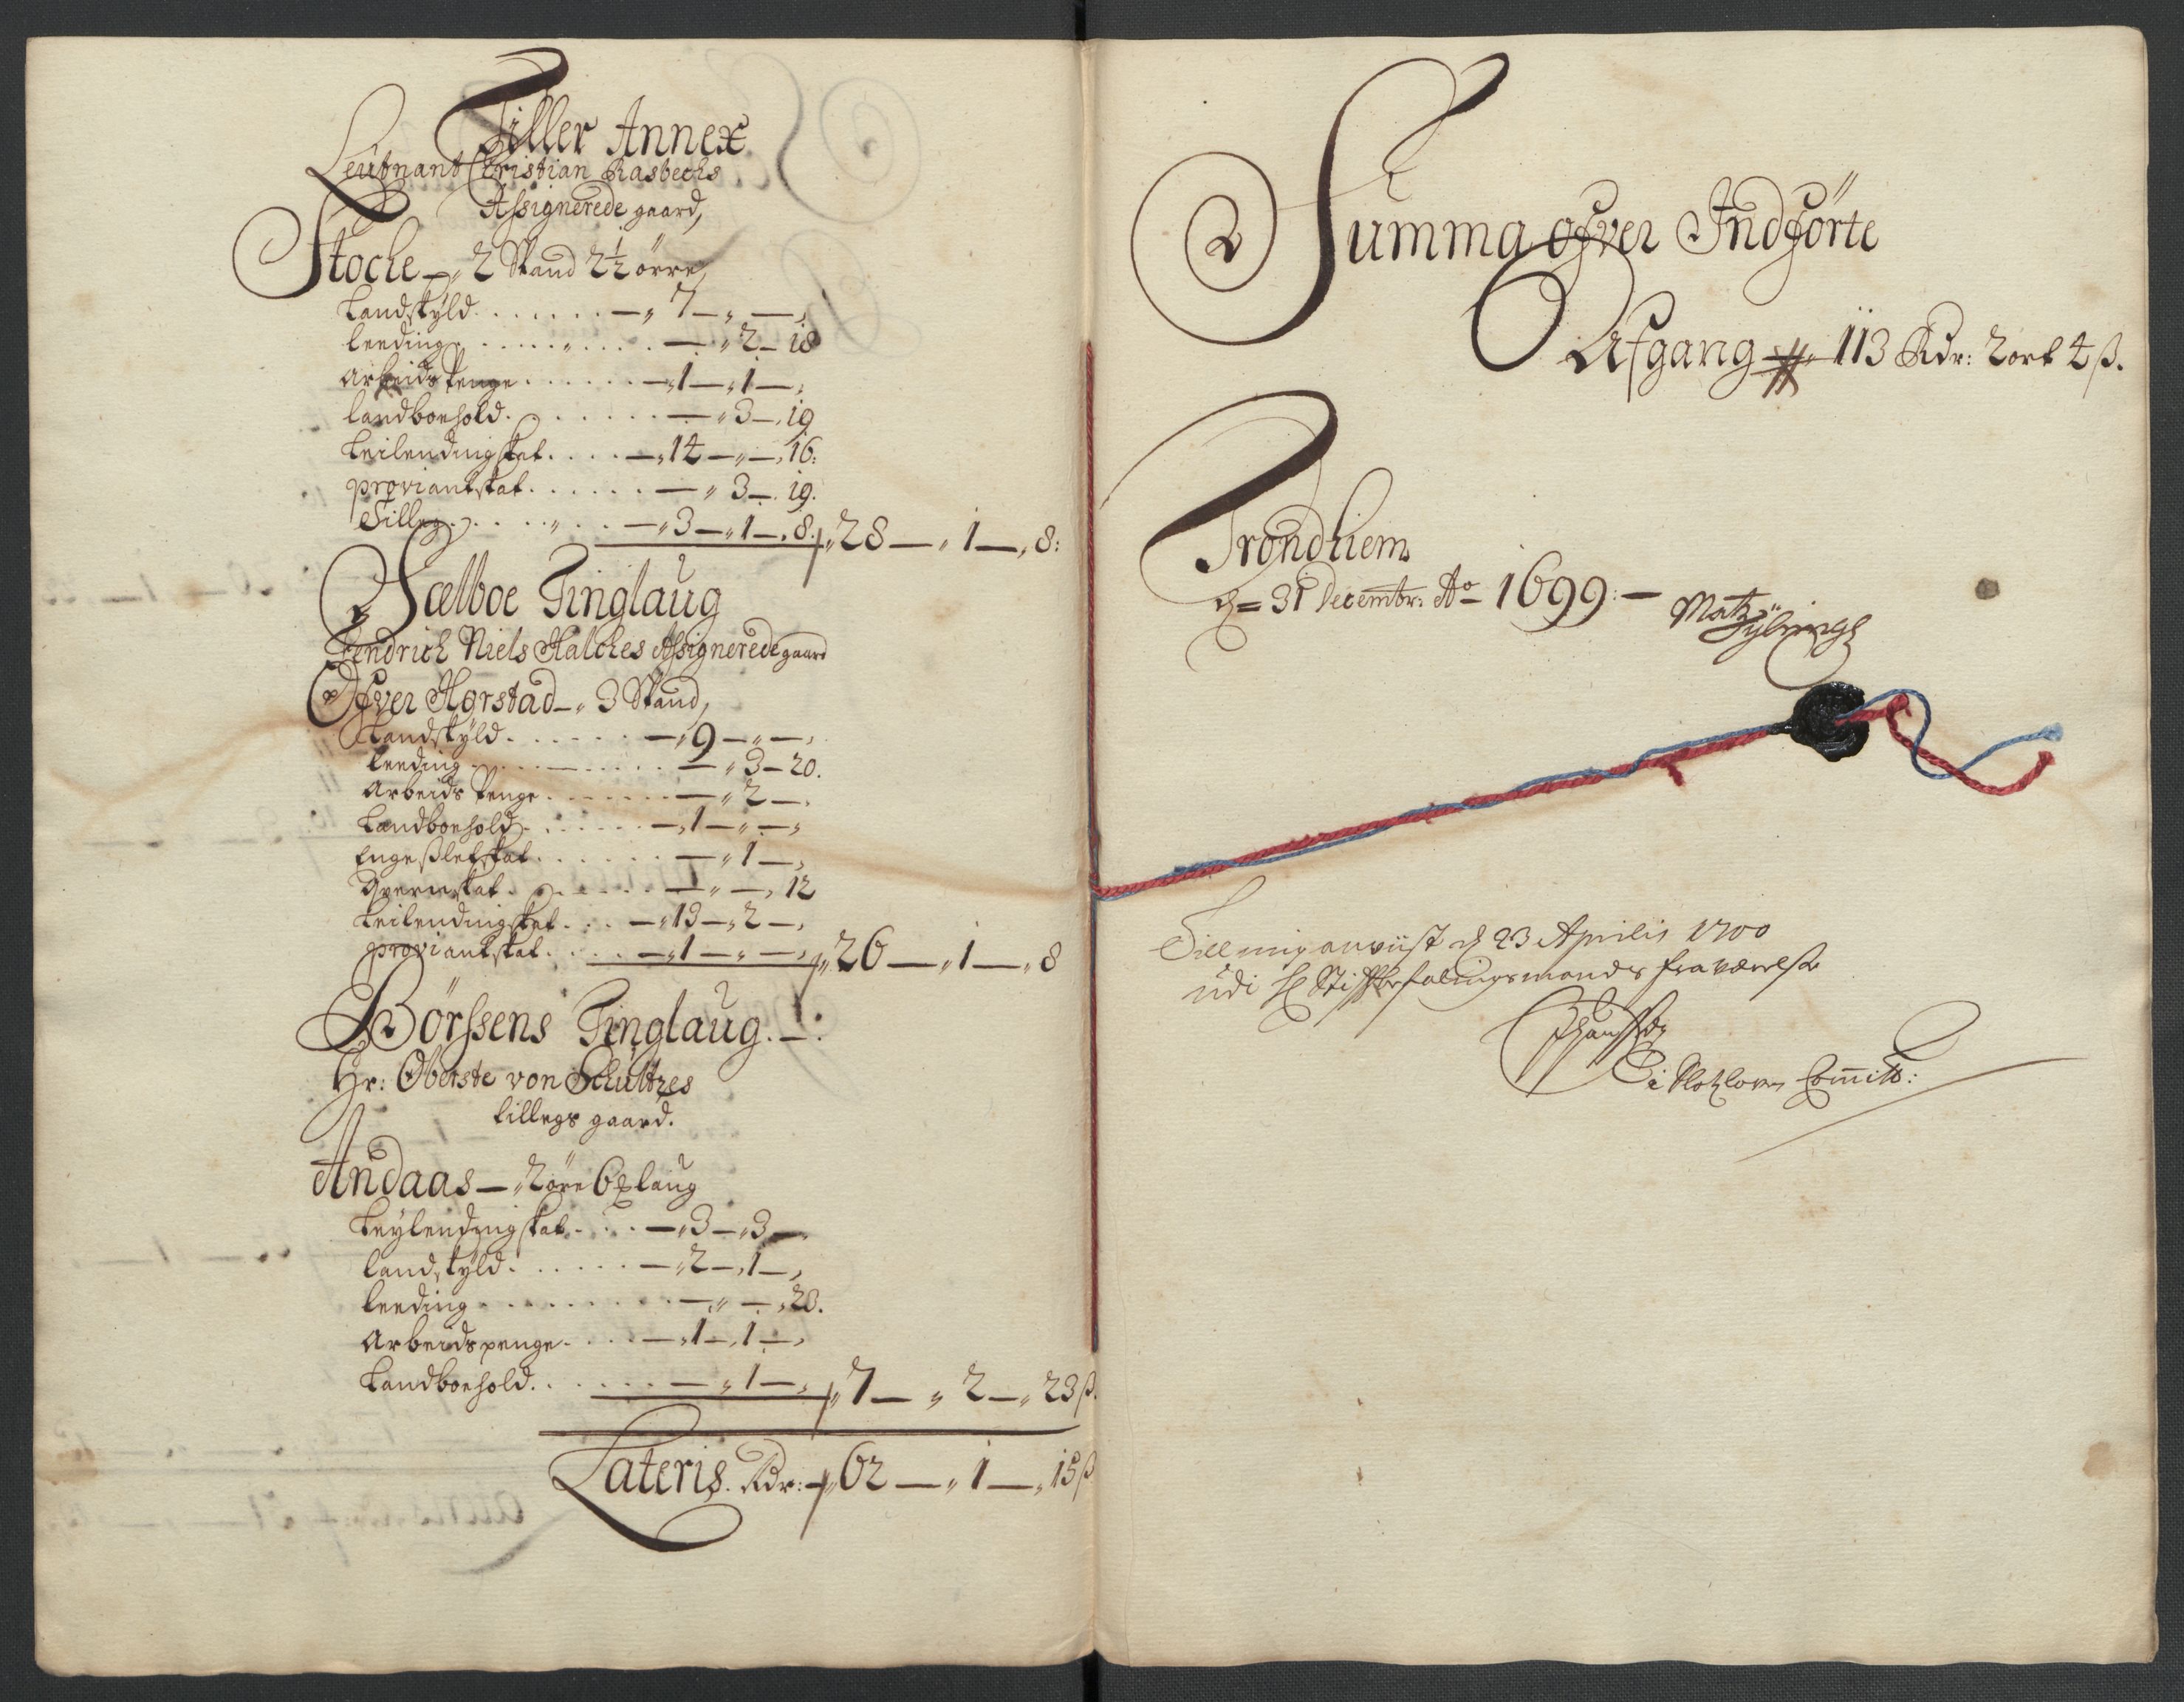 Tiller Annex
Leutnant Christian Rasbechs
Assignerede gaard,
Stocke — 2 Spand 2½ örre,
Landskyld . . . . . . — 7 — „ —,
Leeding . . . . . . — „ 2 — 18
Arbeids Penge . . . . . — 1 — „ 1 —,
landboehold . . . . . . — „ 3 — 19
Leilendingskat . . . . — 14 — „ — 16:
proviantskat . . . . . . — „ 3 — 19.
Tilleg . . . . — 3 — „ 1 — 8. 28 — „ 1 — „ 8:
Sælboe Tinglaug
Fendrich Niels Halches Assignerede gaard
Ofver Horstad — 3 Spand,
Landskyld . . . . . . — 9 — „ —,
Leeding . . . . . . — „ 3 — 20.
Arbeids Penge . . . . . . — „ 2 —,
Landboehold . . . . . . — 1 — „ —,
Engesletskat . . . . . . — „ 1 —,
Qvernskat . . . . . . — „ —, 12
Leilendingskat . . . — 13 — „ 2 —,
proviantskat . . . . — 1 — „ —, 26 — „ 1 — „ 8
Börssens Tinglaug. —:
Hr: Oberste von Schultzes
tillegs gaard.
Andaas — 2 öre 6 &laug
Leylendingskat . . . — 3 — „ 3 —,
landskyld . . . . . . — 2 — „ 1 —,
leeding . . . . . . . . — „ —, 20.
Arbeidspenge . . . . — 1 — „ 1 —,
Landboehold . . . . . . — „ 1 —, 7 — „ 2 — „ 23 ß.
Lateris. Rdr: 62 — „ 1 — „ 15 ß
Summa ofver Indförte
Afgang — 113 Rdr: 2 ort 4 ß.
Trondhiem
d = 31 Decembr: Ao 1699: — Matz
Till mig anviist d 23 Aprilis 1700
udi H Stiftbefalingsmands fraværelse
i Slotzlovn Committ: